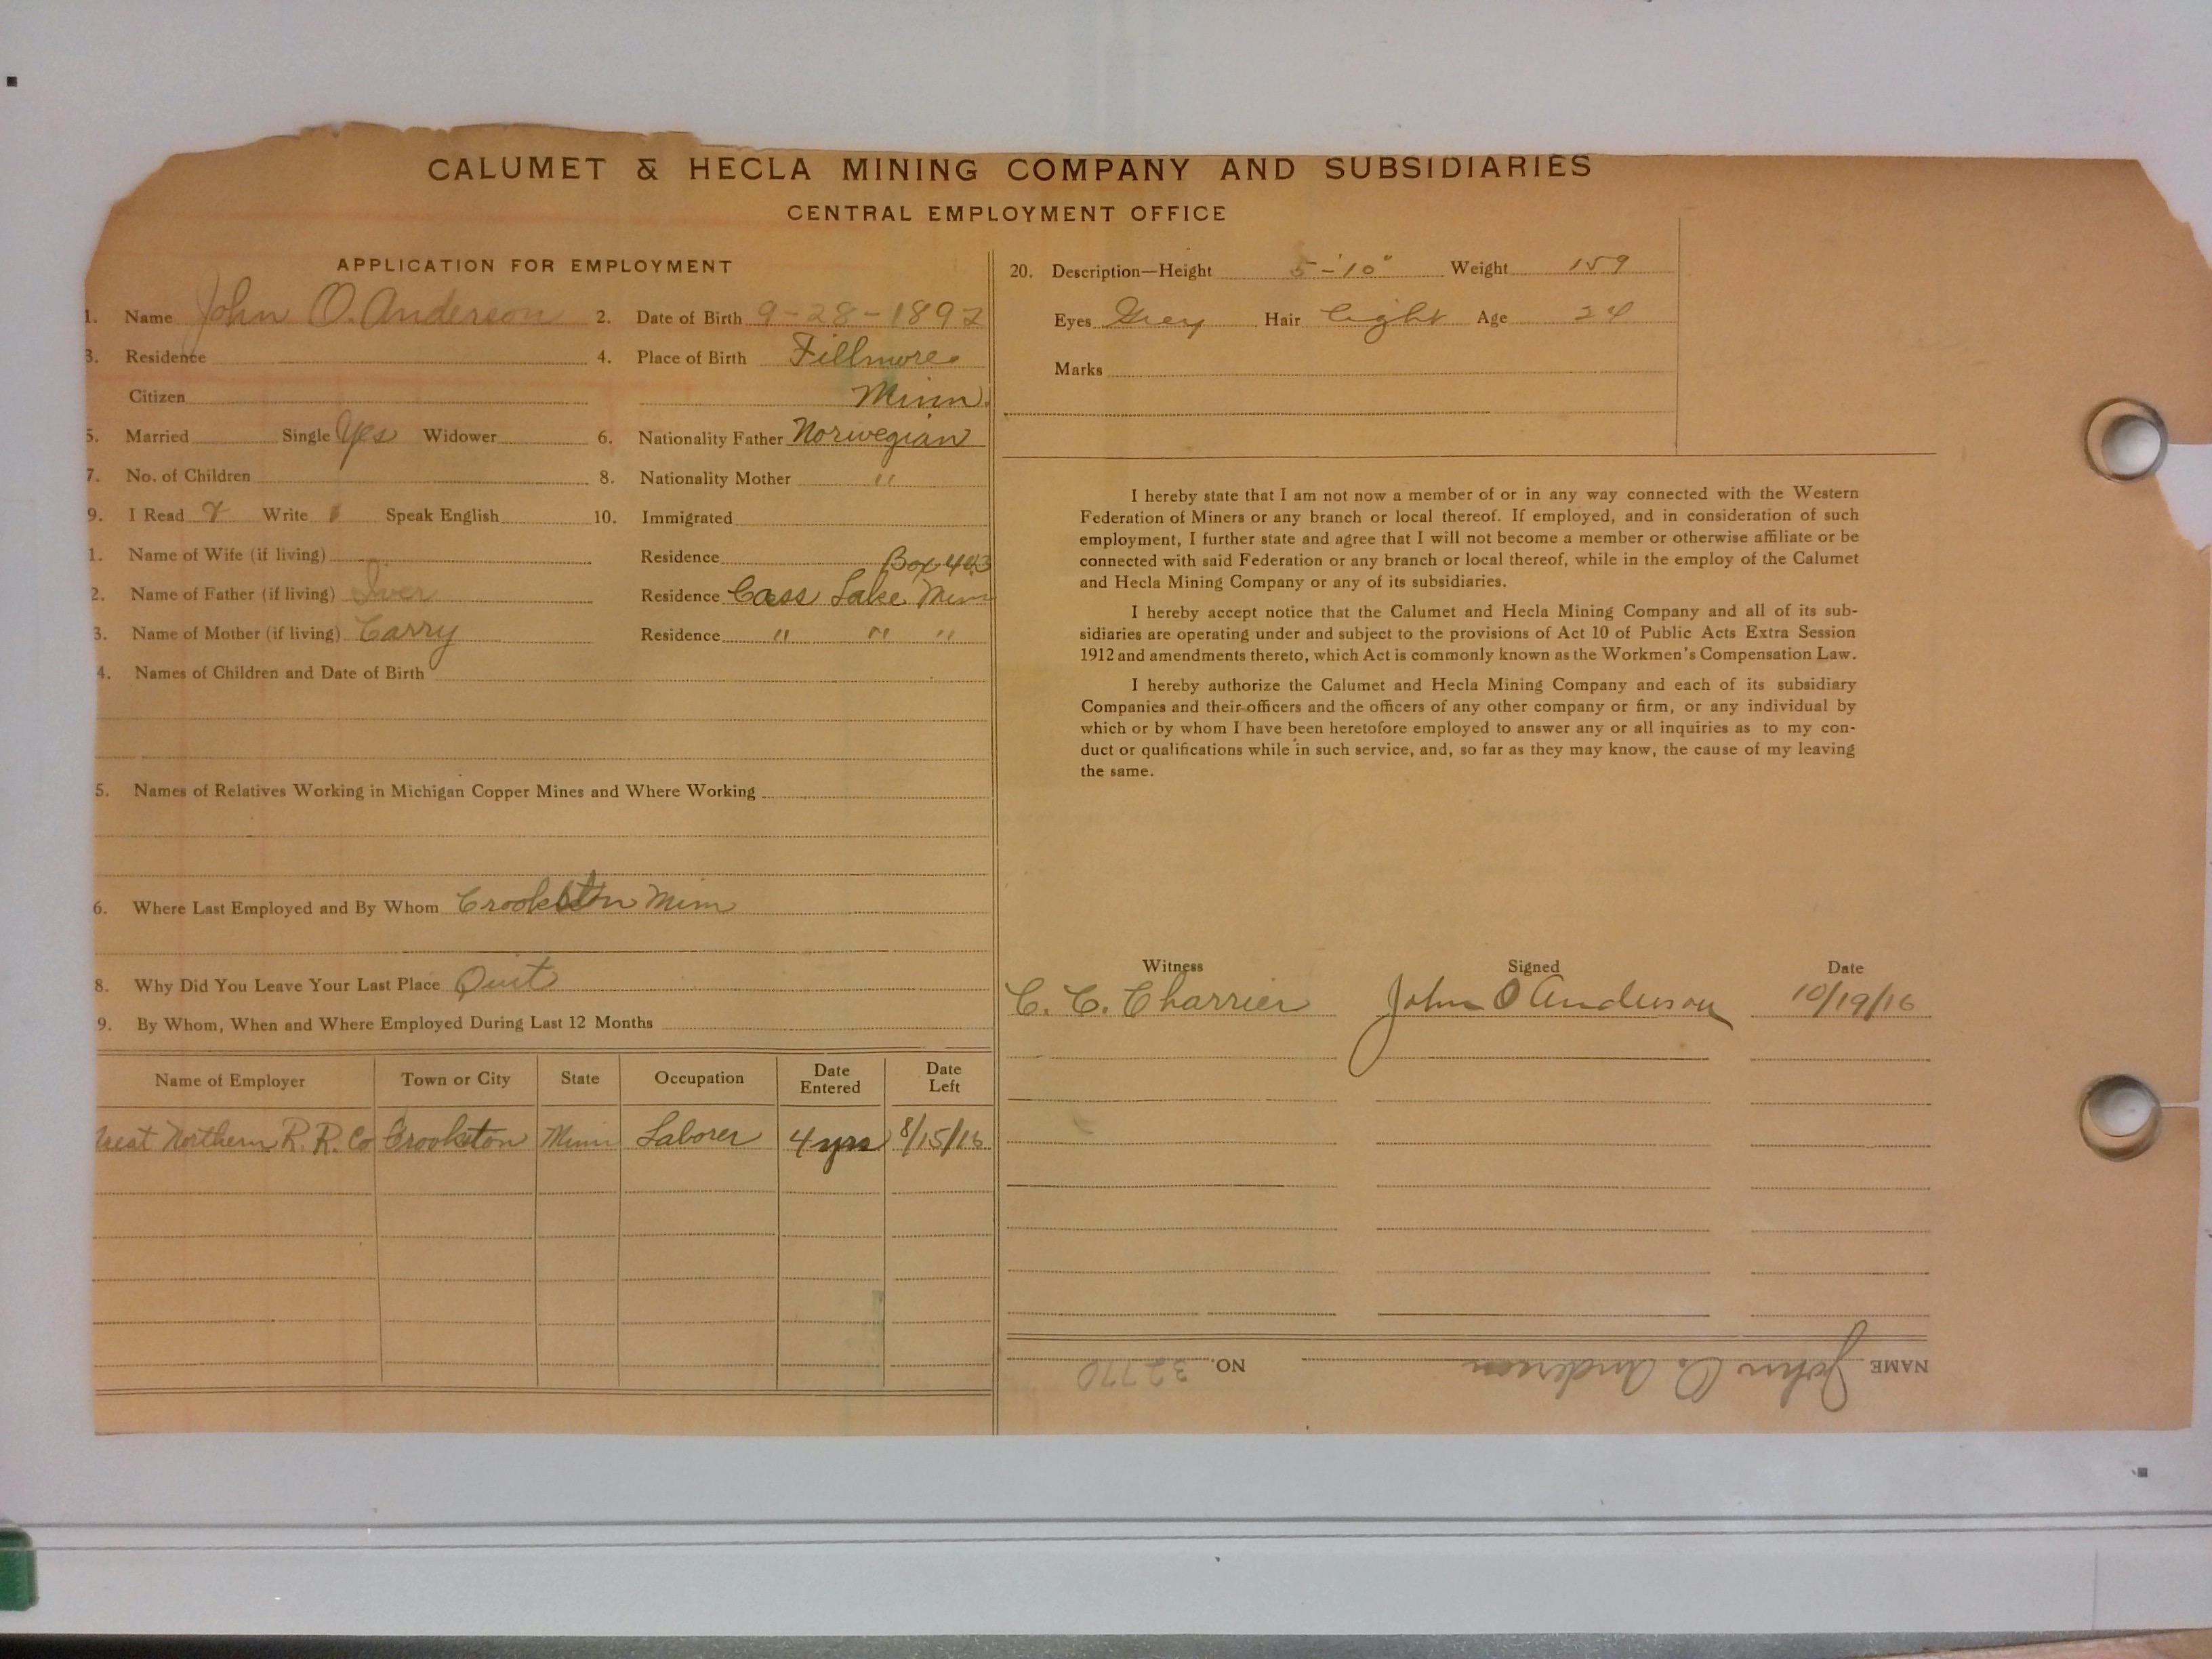 CALUMET & HECLA MINING COMPANY AND SUBSIDIARIES
CENTRAL EMPLOYMENT OFFICE
APPLICATION FOR EMPLOYMENT
1. Name John O. Anderson 2. Date of Birth 9-28-1892
3. Residence 4. Place of Birth Fillmore
Citizen Minn.
5. Married Single Yes Widower 6. Nationality Father Norwegian
7. No. of Children 8. Nationality Mother "
9. I Read Write Speak English 10. Immigrated
1. Name of Wife (if living) Residence Box 443
2. Name of Father (if living) Iver Residence Cass Lake Minn
3. Name of Mother (if living) Carry Residence " " "
4. Names of Children and Date of Birth
5. Names of Relatives Working in Michigan Copper Mines and Where Working
6. Where Last Employed and By Whom Crookston Minn
8. Why Did You Leave Your Last Place Quit
9. By Whom, When and Where Employed During Last 12 Months
Name of Employer Town or City State Occupation Date Entered Date Left
Northern R. R. Co Crookston Minn Laborer 4 yrs 8/15/16
20. Description—Height 5-'10" Weight 159
Eyes Grey Hair light Age 24
Marks
I hereby state that I am not now a member of or in any way connected with the Western
Federation of Miners or any branch or local thereof. If employed, and in consideration of such
employment, I further state and agree that I will not become a member or otherwise affiliate or be
connected with said Federation or any branch or local thereof, while in the employ of the Calumet
and Hecla Mining Company or any of its subsidiaries.
I hereby accept notice that the Calumet and Hecla Mining Company and all of its sub-
sidiaries are operating under and subject to the provisions of Act 10 of Public Acts Extra Session
1912 and amendments thereto, which Act is commonly known as the Workmen's Compensation Law.
I hereby authorize the Calumet and Hecla Mining Company and each of its subsidiary
Companies and their officers and the officers of any other company or firm, or any individual by
which or by whom I have been heretofore employed to answer any or all inquiries as to my con-
duct or qualifications while in such service, and, so far as they may know, the cause of my leaving
the same.
Witness Signed Date
C. C. Charrier John O Anderson 10/19/16
NAME John O. Anderson NO. 32770